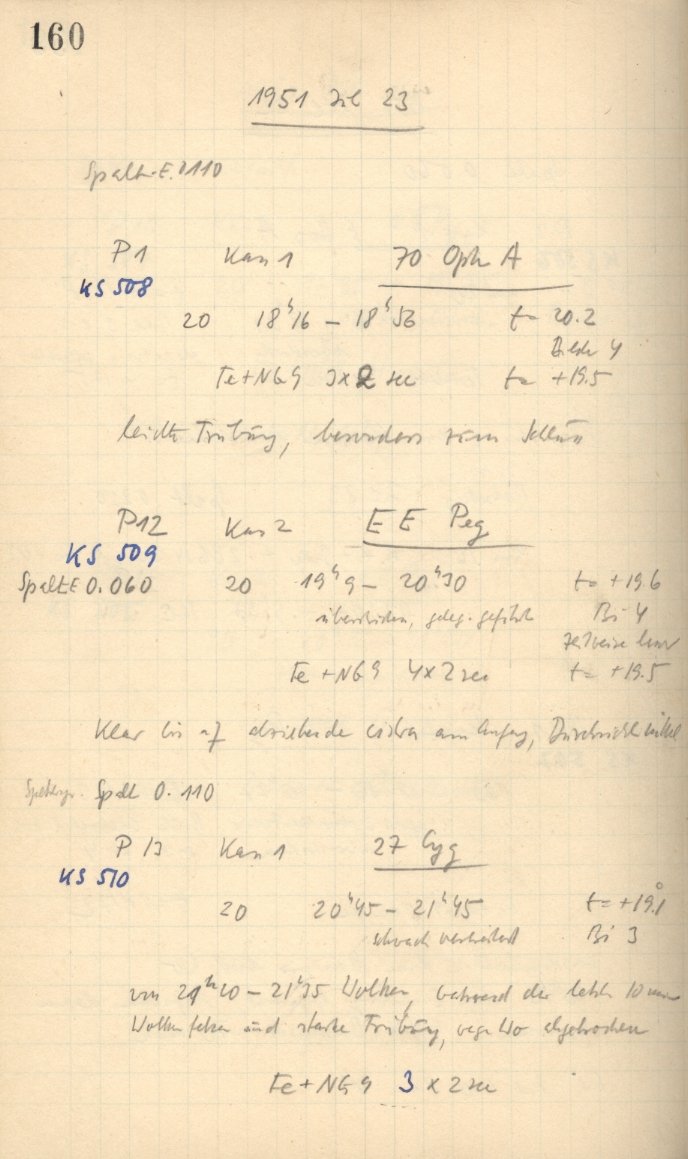 160
1951 Jul 23
Spalt-E. 0110
P1 Kas 1 70 Oph A
KS 508
20 18ʰ16 – 18ʰ56 t= 20.2
Bilder 4
Fe+NG9 3x2 sec t= +19.5
leichte Trübung, besonders zum Schluss
P12 Kas 2 EE Peg
KS 509
Spalt E 0.060 20 19ʰ9 – 20ʰ30 t= +19.6
geleg. geführt Bi 4
zeitweise
Fe+NG9 4x2 sec t= +19.5
Klar bis auf abziehende cirren am Anfang, Durchsicht mittel
Spalt 0.110
P 13 Kas 1 27 Cyg
KS 510
20 20ʰ45 – 21ʰ45 t= +19.1
schwach verbreitert Bi 3
von 21ʰ20 – 21ʰ35 Wolken, während der letzten 10 min
Wolkenfetzen und starke Trübung, wegen Wo abgebrochen
Fe+NG9 3 x 2 sec